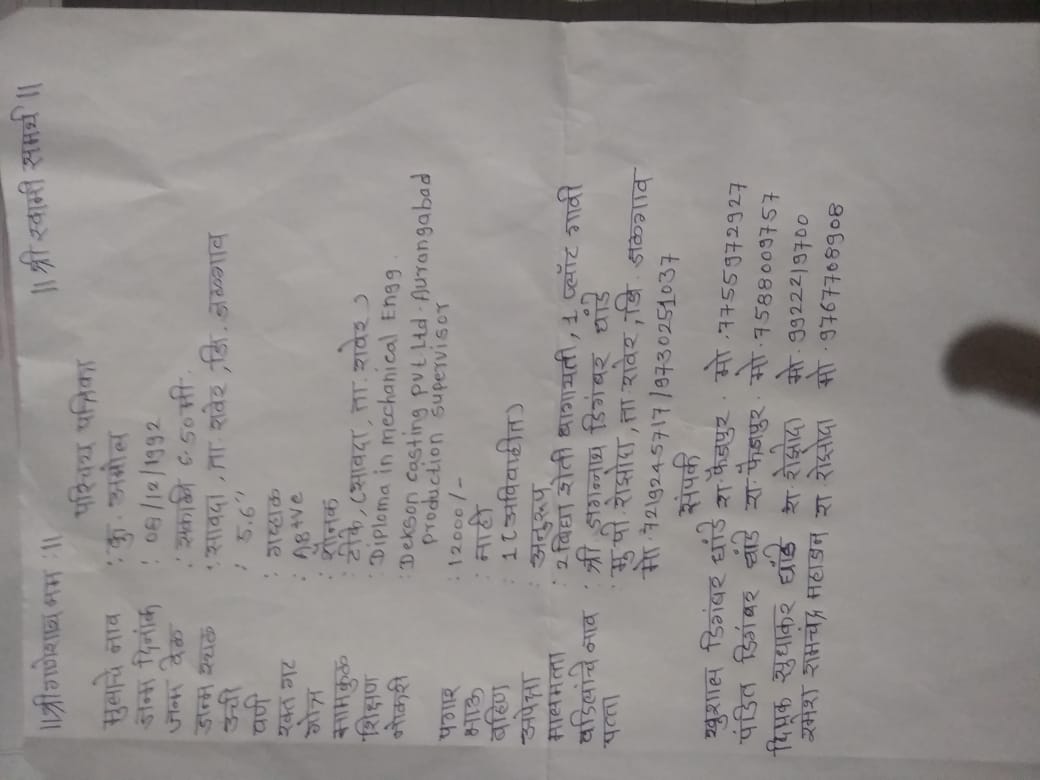 ॥श्री गणेशाय नमः॥ ॥ श्री स्वामी समर्थ ॥
परिचय पत्रिका
मुलाचे नाव : कु. अमोल
जन्म दिनांक : 08/12/1992
जन्म वेळ : सकाळी 6.50मी.
जन्म स्थळ : सावदा, ता. रावेर, जि. जळगाव
उंची : 5.6"
वर्ण :
रक्त गट : AB+ve
गोत्र : शौनक
मामकुळ : टोके, (सावदा, ता. रावेर)
शिक्षण : Diploma in mechanical Engg.
नोकरी : Dekson casting Pvt Ltd. Aurangabad
production supervisor
पगार : 12000/-
भाऊ : नाही
बहिण : 1 (अविवाहीत)
अपेक्षा : अनुरूप
मालमत्ता : 2 बिघा शेती बागायती, 1 प्लॉट गावी
वडिलांचे नाव : श्री जगन्नाथ डिगंबर धांडे
पत्ता : मु. पो रोझोदा, ता रावेर, जि. जळगाव
मो. 7292457 / 9730251037
संपर्क
खुशाल डिगंबर धांडे रा. फैजपुर. मो. 7755972927
पंडित डिगंबर धांडे रा. फैजपुर. मो. 7588009757
दिपक सुधाकर धांडे रा रोझोदा मो. 9922219700
रमेश रामचंद्र महाजन रा रोझोदा मो. 9767708908